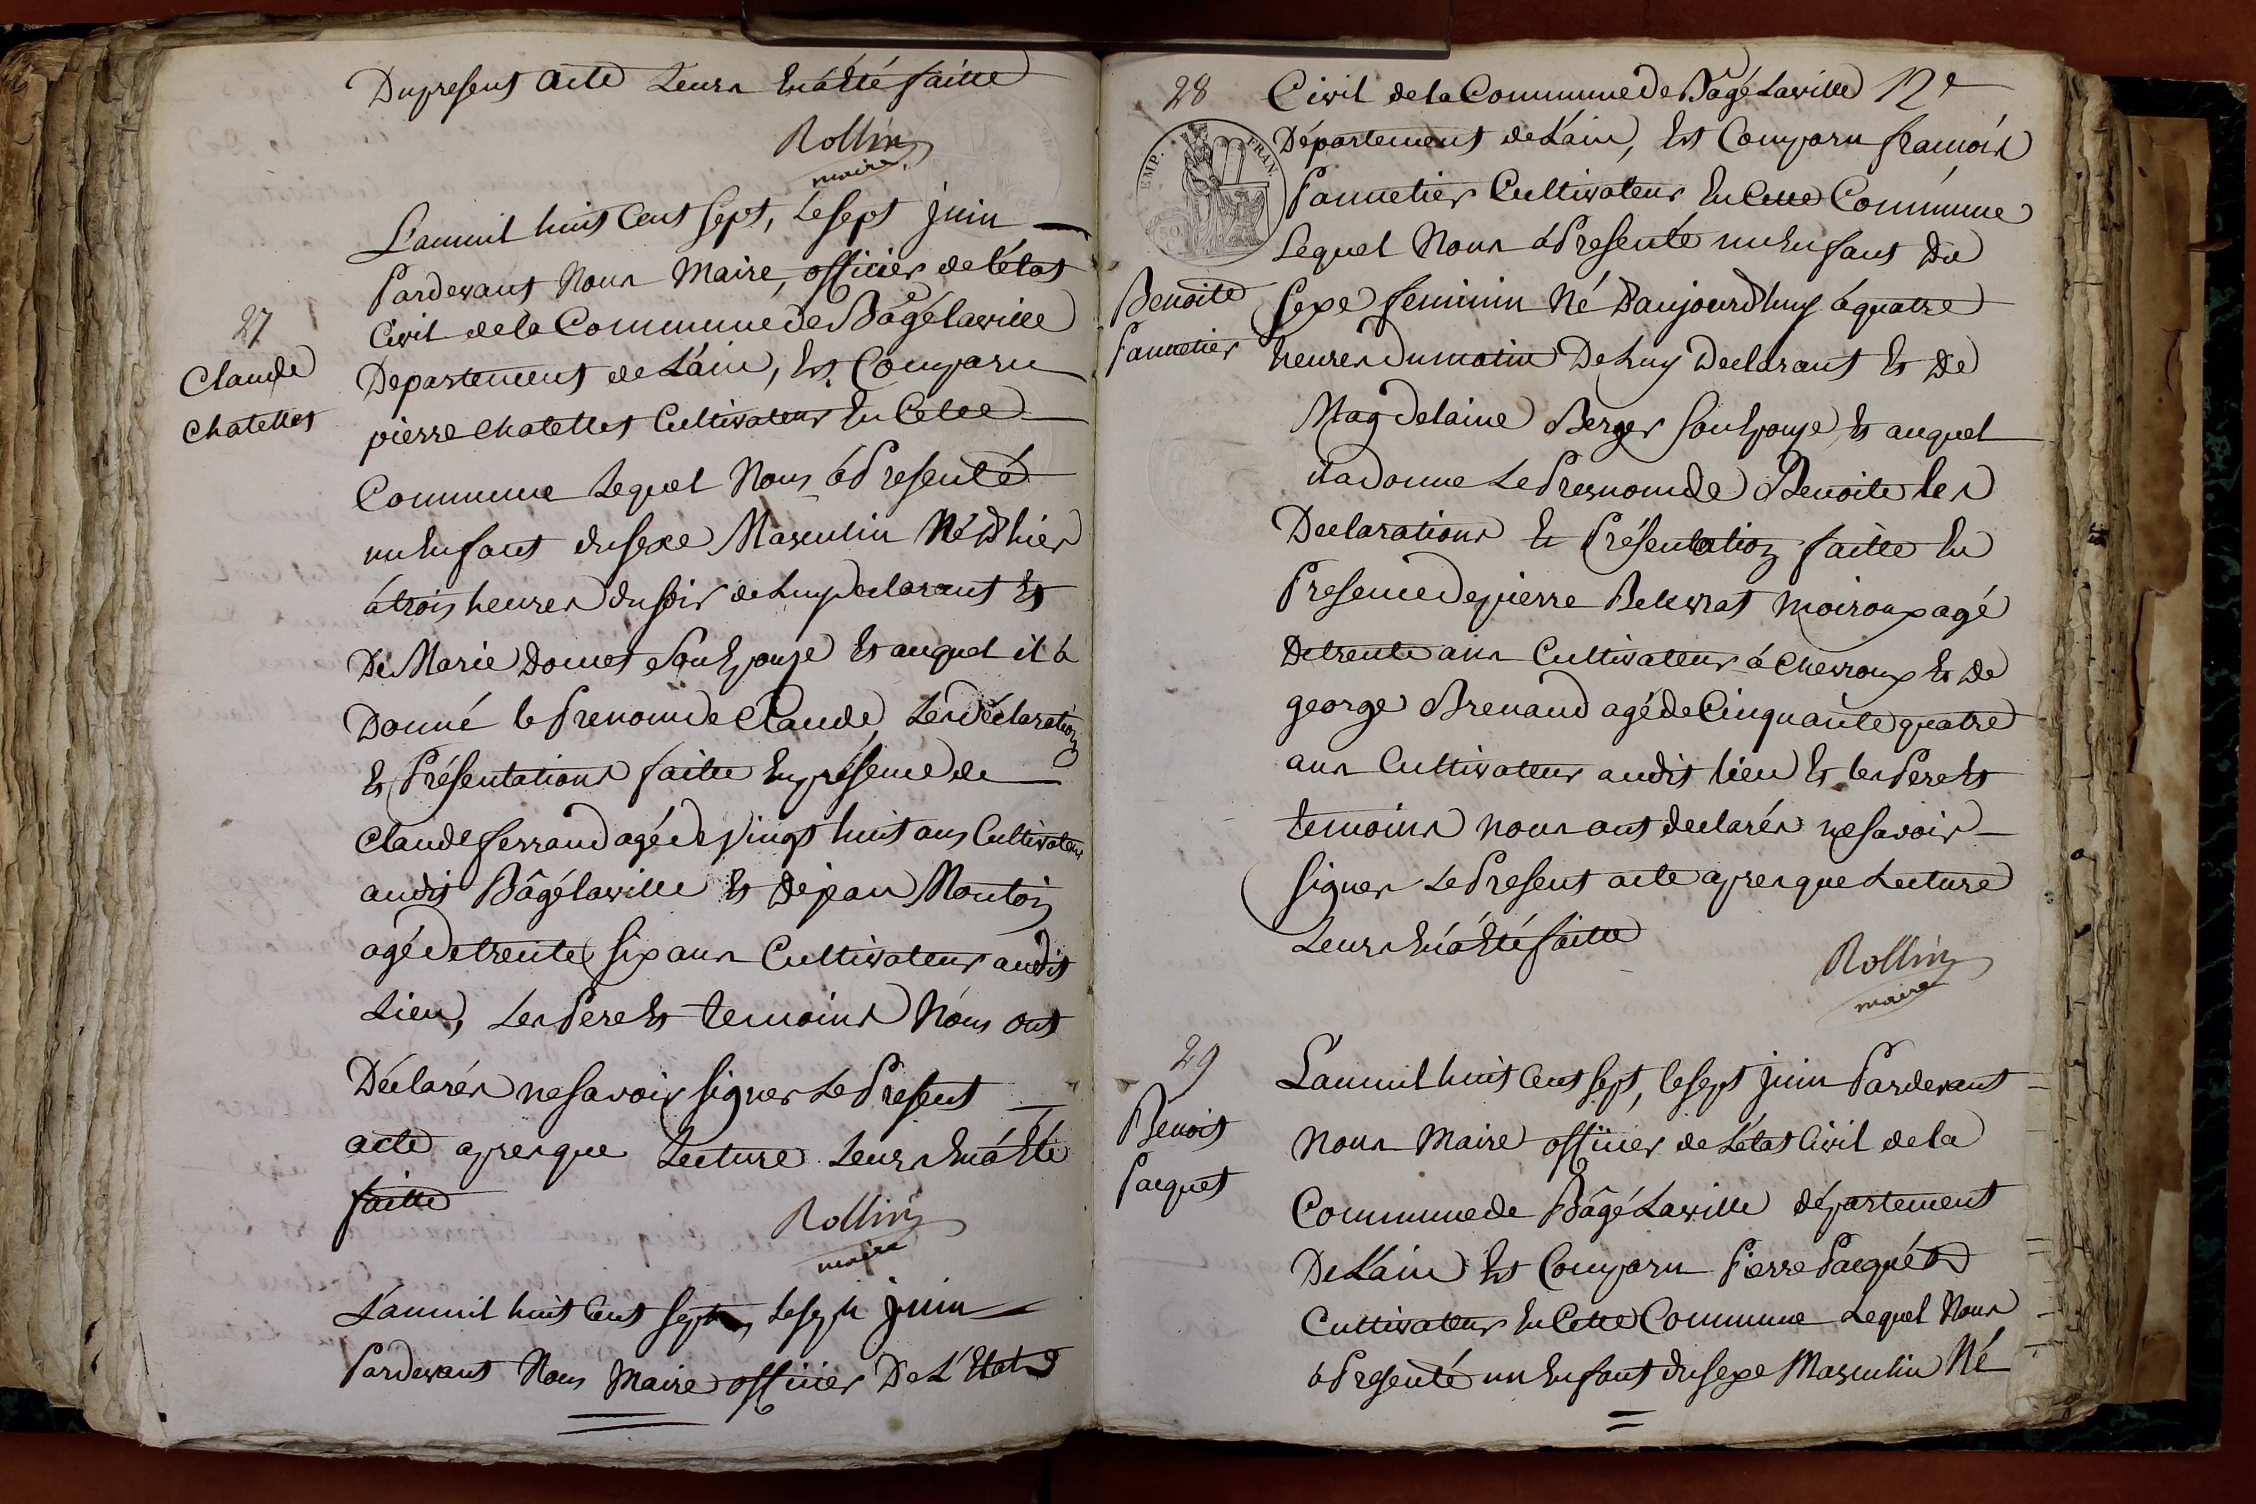 Du present acte Leurs En à Eté faitte
Rollin
maire
L'an mil huit Cent Sept, Le sept juin
Pardevant Nous Maire, officier de l'état
Civil de la Commune de Bâgé laville
27
Claude
Chatellet
Departement de L'ain, Est Comparu
pierre chatellet Cultivateur En Cette
Commune Lequel Nous à Presenté
un Enfant du sexe Masculin Né D'hier
à trois heures du soir de Luy Declarant Et
De Marie Domet Son Epouse Et auquel il à
Donné le Prenom de Claude, Les déclarations
Et Présentations faitte En présence de
Claude ferrand agé de Vingt huit ans Cultivateur
audit Bâgé laville Et De jean Monton
agé de trente six ans Cultivateur audit
Lieu, Les Pere Et temoins Nous ont
Déclarés ne Savoir signer Le Present
acte apres que Lecture Leurs En à Eté
faitte
Rollin
maire
L'an mil huit Cent sept, Le sept juin
Pardevant Nous Maire officier De L'Etat
28
EMP. FRAN.
Benoite
Pannetier
Civil de la Commune de Bâgé Laville 12e
Département de L'ain, Est Comparu francois
Pannetier Cultivateur En Cette Commune
Lequel Nous à Presenté un Enfant Du
Sexe feminin Né D'aujourd'huy à quatre
heures du matin De Luy Declarant Et De
Magdelaine Berger Son Epouse, Et auquel
il a Donne Le Prenom de Benoite les
Declarations Et Présentation faitte En
Presence De pierre Belevrat Moiroux agé
De trente ans Cultivateur à Chevroux Et De
george Brenaud agé de Cinquante quatre
ans Cultivateur audit lieu Et les Pere Et
temoins nous ont declarés ne Savoir
Signer Le Present acte apres que Lecture
Leurs En à Eté faitte
Rollin
maire
29
Benoit
Pacquet
L'an mil huit Cent sept, le sept juin Pardevant
Nous Maire officier de L'état Civil de la
Commune de Bâgé Laville département
De L'ain Est Comparu Pierre Pacquet
Cultivateur En Cette Commune Lequel Nous
à Presenté un Enfant du sexe Masculin Né